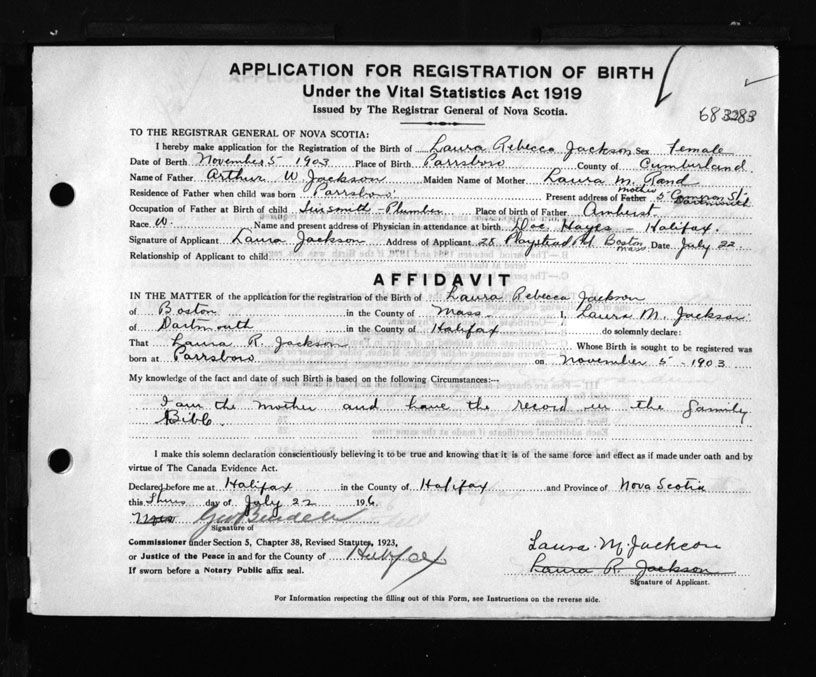 APPLICATION FOR REGISTRATION OF BIRTH
Under the Vital Statistics Act 1919
Issued by The Registrar General of Nova Scotia.
TO THE REGISTRAR GENERAL OF NOVA SCOTIA:
I hereby make application for the Registration of the Birth of Laura Rebecca Jackson Sex Female
Date of Birth November 5 1903 Place of Birth Parrsboro County of Cumberland
Name of Father Arthur W Jackson Maiden Name of Mother Laura M. Rand
Residence of Father when child was born Parrsboro Present address of Father mother 5 Common St.
Occupation of Father at Birth of child Tinsmith-Plumber Place of birth of Father Amherst
Race W. Name and present address of Physician in attendance at birth Doc Hayes - Halifax.
Signature of Applicant Laura Jackson Address of Applicant 28 Playstead Rd Boston Mass Date July 22
Relationship of Applicant to child
AFFIDAVIT
IN THE MATTER of the application for the registration of the Birth of Laura Rebecca Jackson
of Boston in the County of Mass. I, Laura M. Jackson
of Dartmouth in the County of Halifax do solemnly declare:
That Laura R. Jackson Whose Birth is sought to be registered was
born at Parrsboro on November 5 - 1903
My knowledge of the fact and date of such Birth is based on the following Circumstances:--
I am the mother and have the record in the family
Bible.
I make this solemn declaration conscientiously believing it to be true and knowing that it is of the same force and effect as if made under oath and by
virtue of The Canada Evidence Act.
Declared before me at Halifax in the County of Halifax and Province of Nova Scotia
this day of July 22 196
Signature of
Commissioner under Section 5, Chapter 38, Revised Statutes, 1923,
or Justice of the Peace in and for the County of Halifax
Laura M. Jackson
If sworn before a Notary Public affix seal.
Laura R. Jackson
Signature of Applicant.
For Information respecting the filling out of this Form, see Instructions on the reverse side.